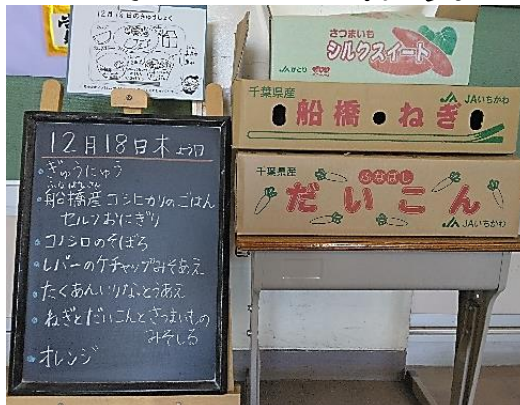 12月18日のきゅうしょく
12月18日木よう日
ぎゅうにゅう
ふなばしさん
船橋産コシヒカリのごはん
セルフおにぎり
コノシロのそぼろ
レバーのケチャップみそあえ
たくあんいりなっとうあえ
ねぎとだいこんとさつまいもの
みそしる
オレンジ
さつまいも
シルクスイート
JAかとり
千葉県産
JAいちかわ
船橋ねぎ
千葉県産
ふなばし
だいこん
JAいちかわ